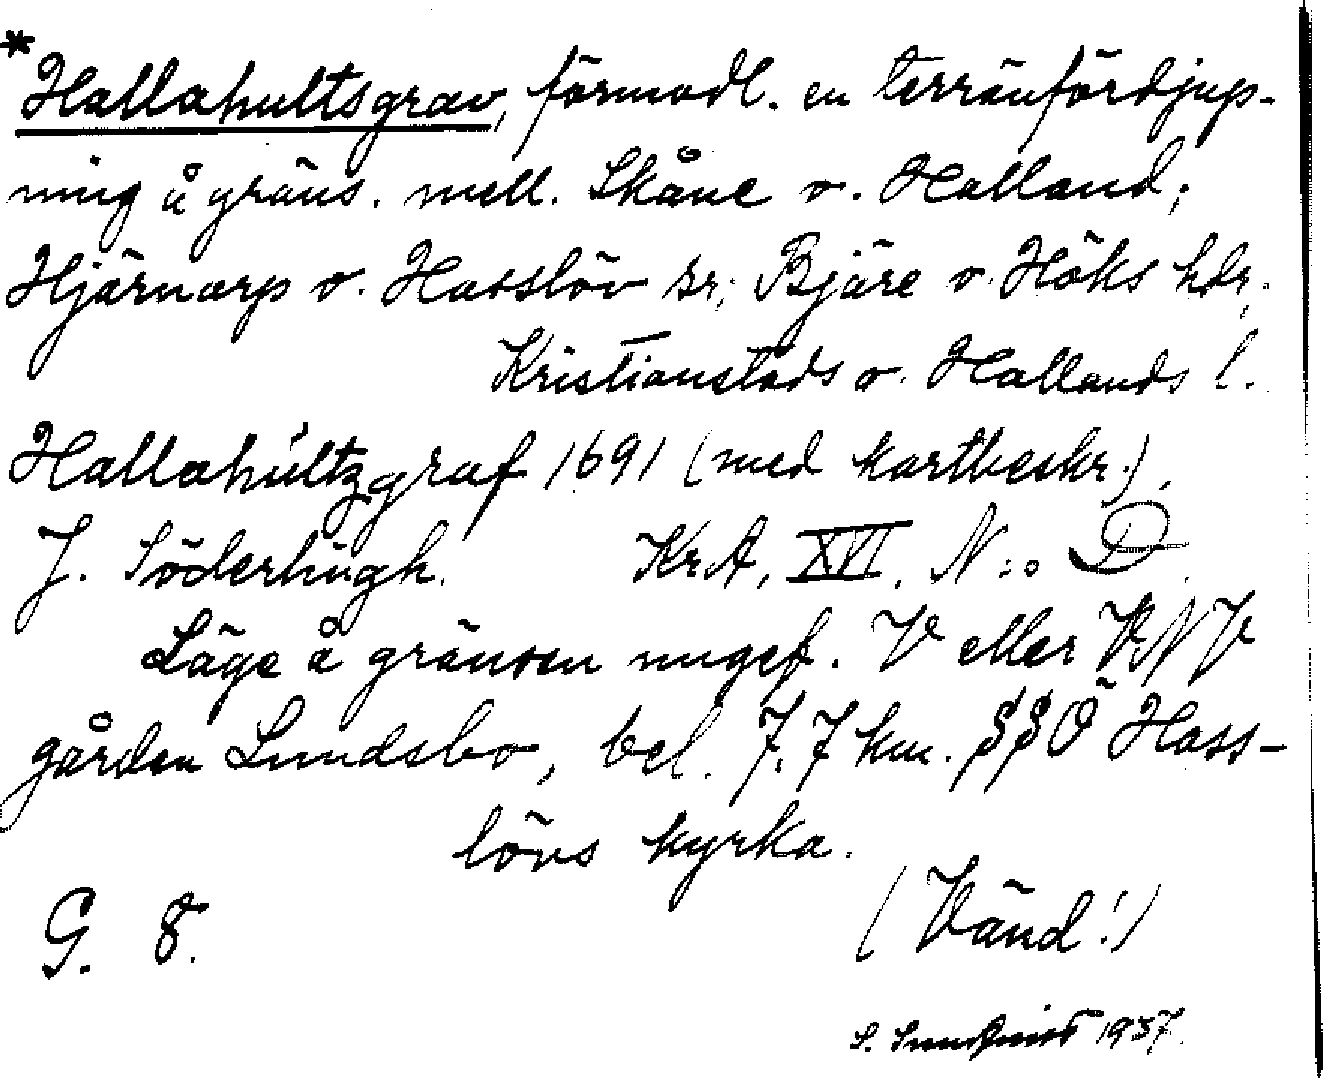 *Hallahultsgrav, förmodl. en terränfördjup-
ning å gräns. mell. Skåne o. Halland;
Hjärnarp o. Hasslöv sr; Bjäre o. Höks hdr,
Kristianstads o. Hallands l.
Hallahultzgraf 1691 (med kartbeskr.),
J. Söderhügh. KrA, XVI, N:o D.
Läge å gränsen ungef. V eller VNV
gården Lundsbo, bel. 7,7 km. SSO Hass-
lövs kyrka.
G. 8. (Vänd!)
S. Sundqvist 1937.